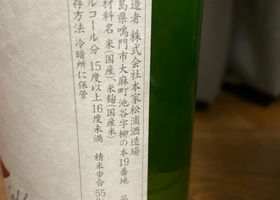 造者 株式会社本家松浦酒造場
島県鳴門市大麻町池谷字柳の本19番地
材料名 米(国産)、米麹(国産米)
ルコール分 15度以上16度未満 精米歩合55
存方法 冷暗所に保管